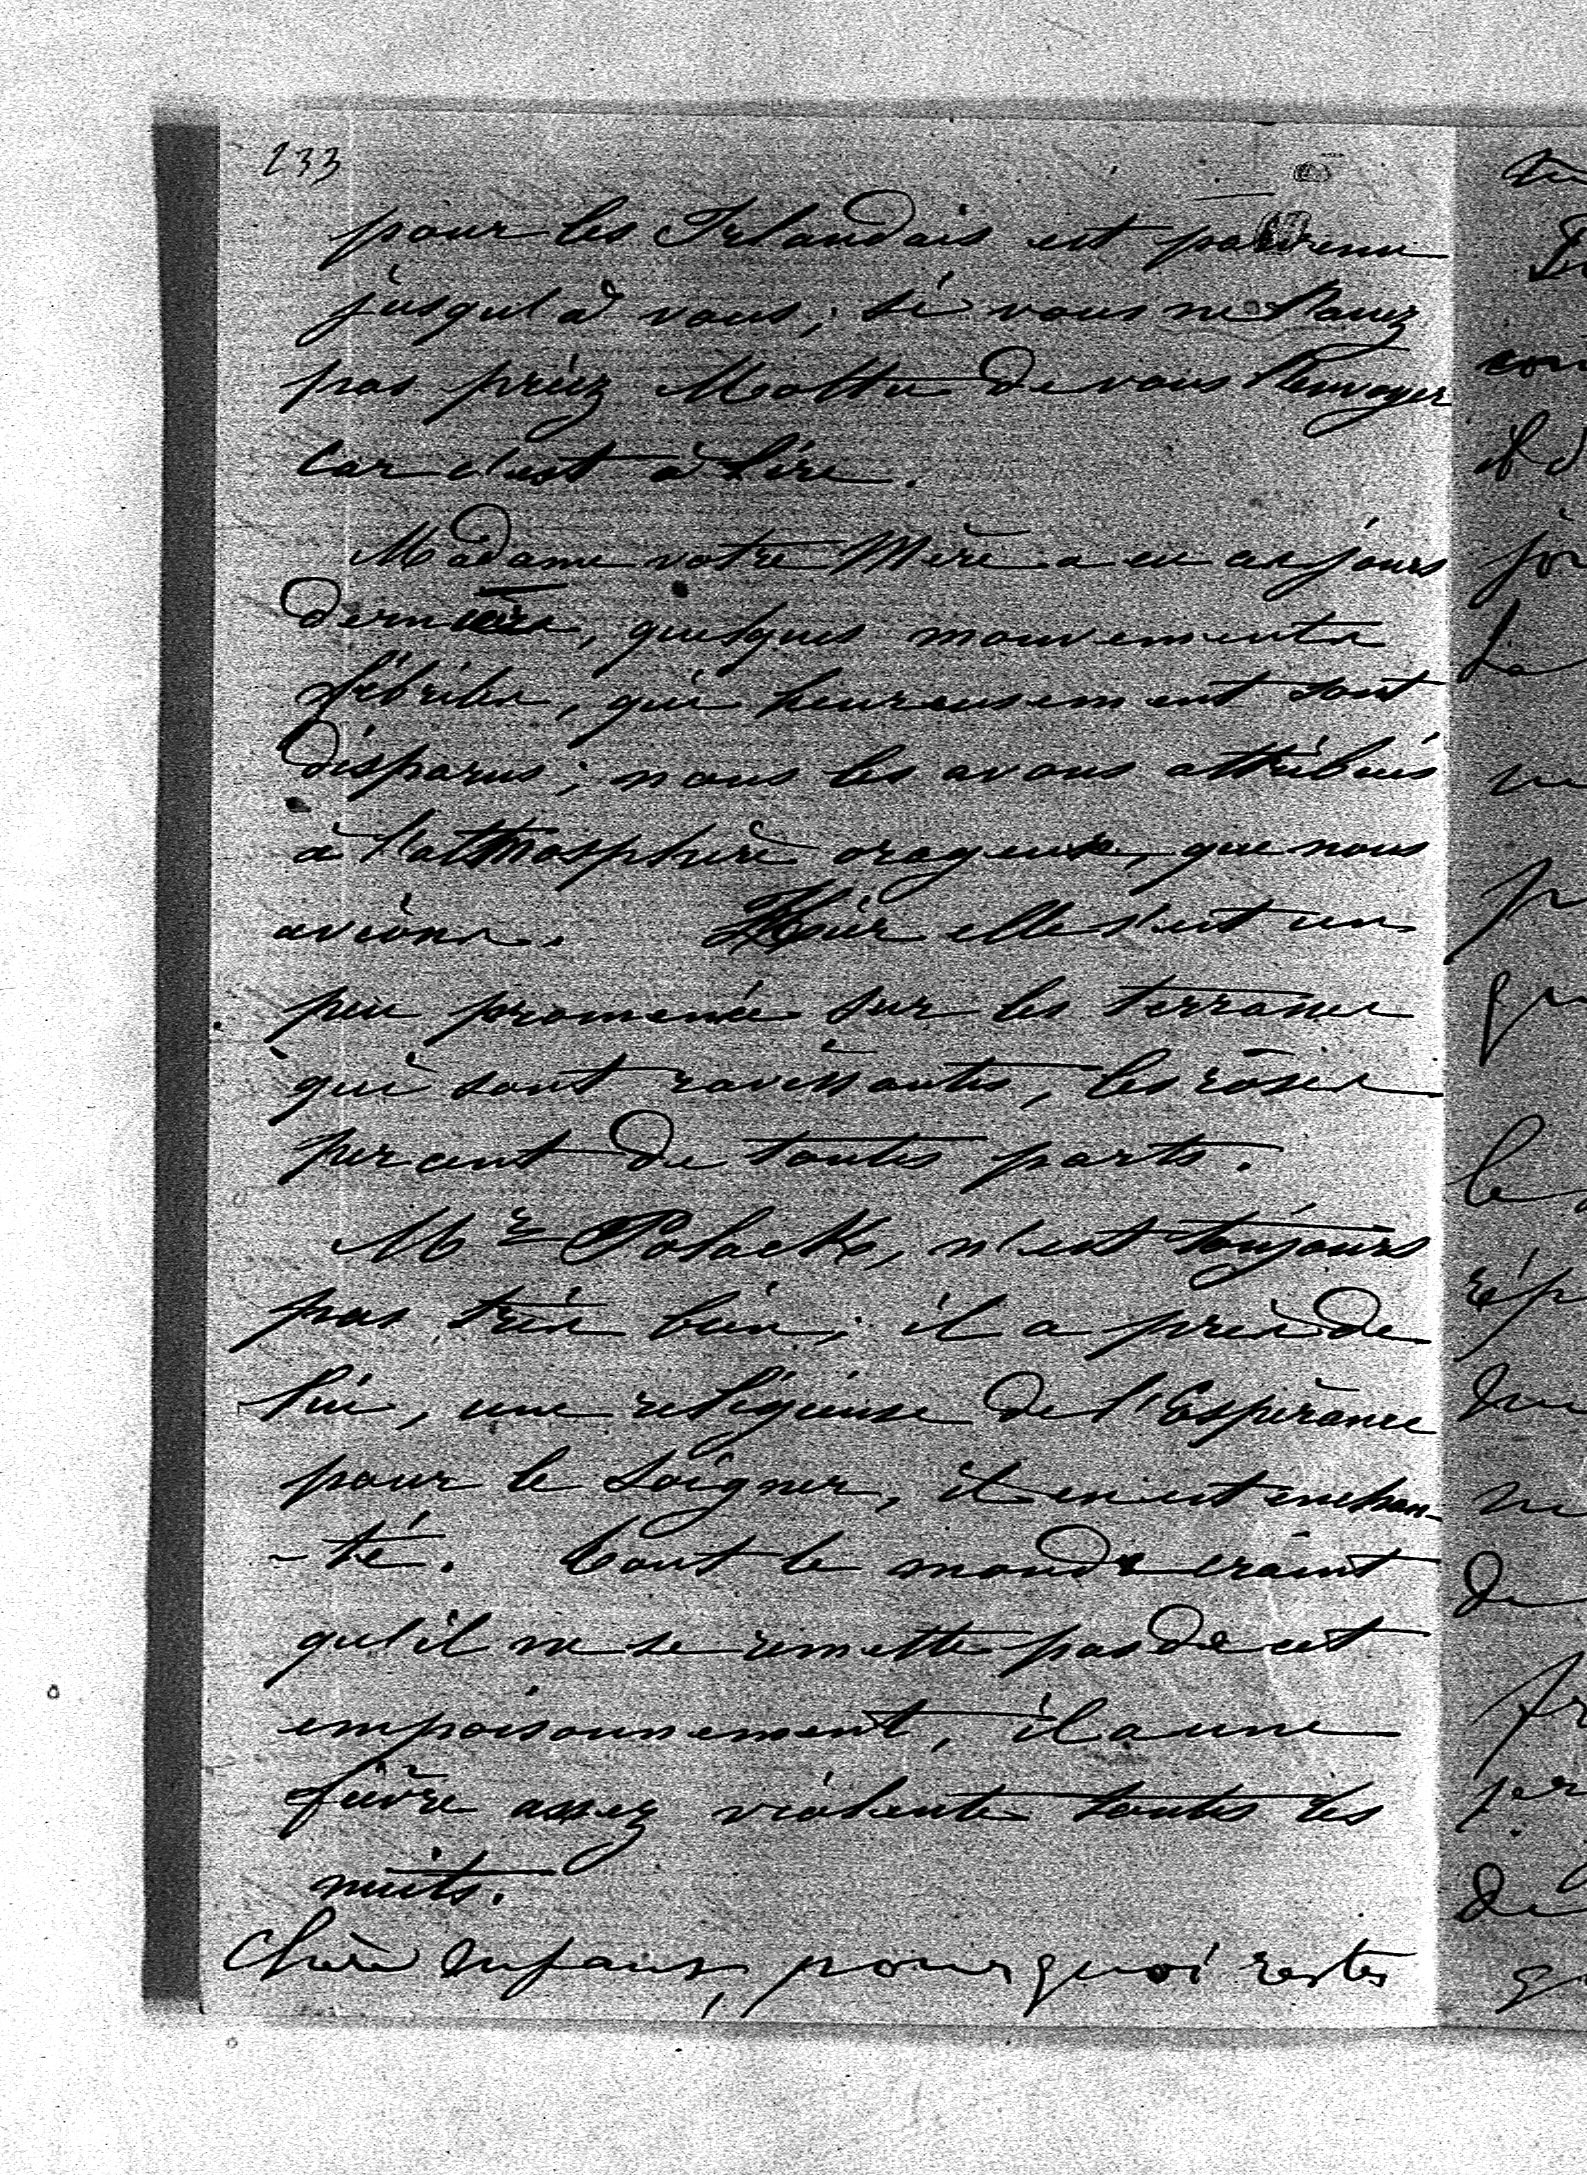 233
pour les Irlandais est parvenu
jusqu'à vous; si vous ne l'avez
pas priez Mottu de vous l'envoyer
car c'est à lire.
Madame votre Mère a eu ces jours
derniers, quelques mouvements
fébriles, qui heureusement sont
disparus; nous les avons attribués
à l'atmosphère orageuse, que nous
avions. Hier elle s'est un
peu promenée sur les terrasses
qui sont ravissantes, les roses
percent de toutes parts.
Mr Polack, n'est toujours
pas très bien; il a près de
lui, une religieuse de l'Espérance
pour le soigner, il en est enchan-
-té. Tout le monde craint
qu'il ne se remette pas de cet
empoisonnement, il a une
fièvre assez violente toutes les
nuits.
Chère Enfant, pourquoi restes